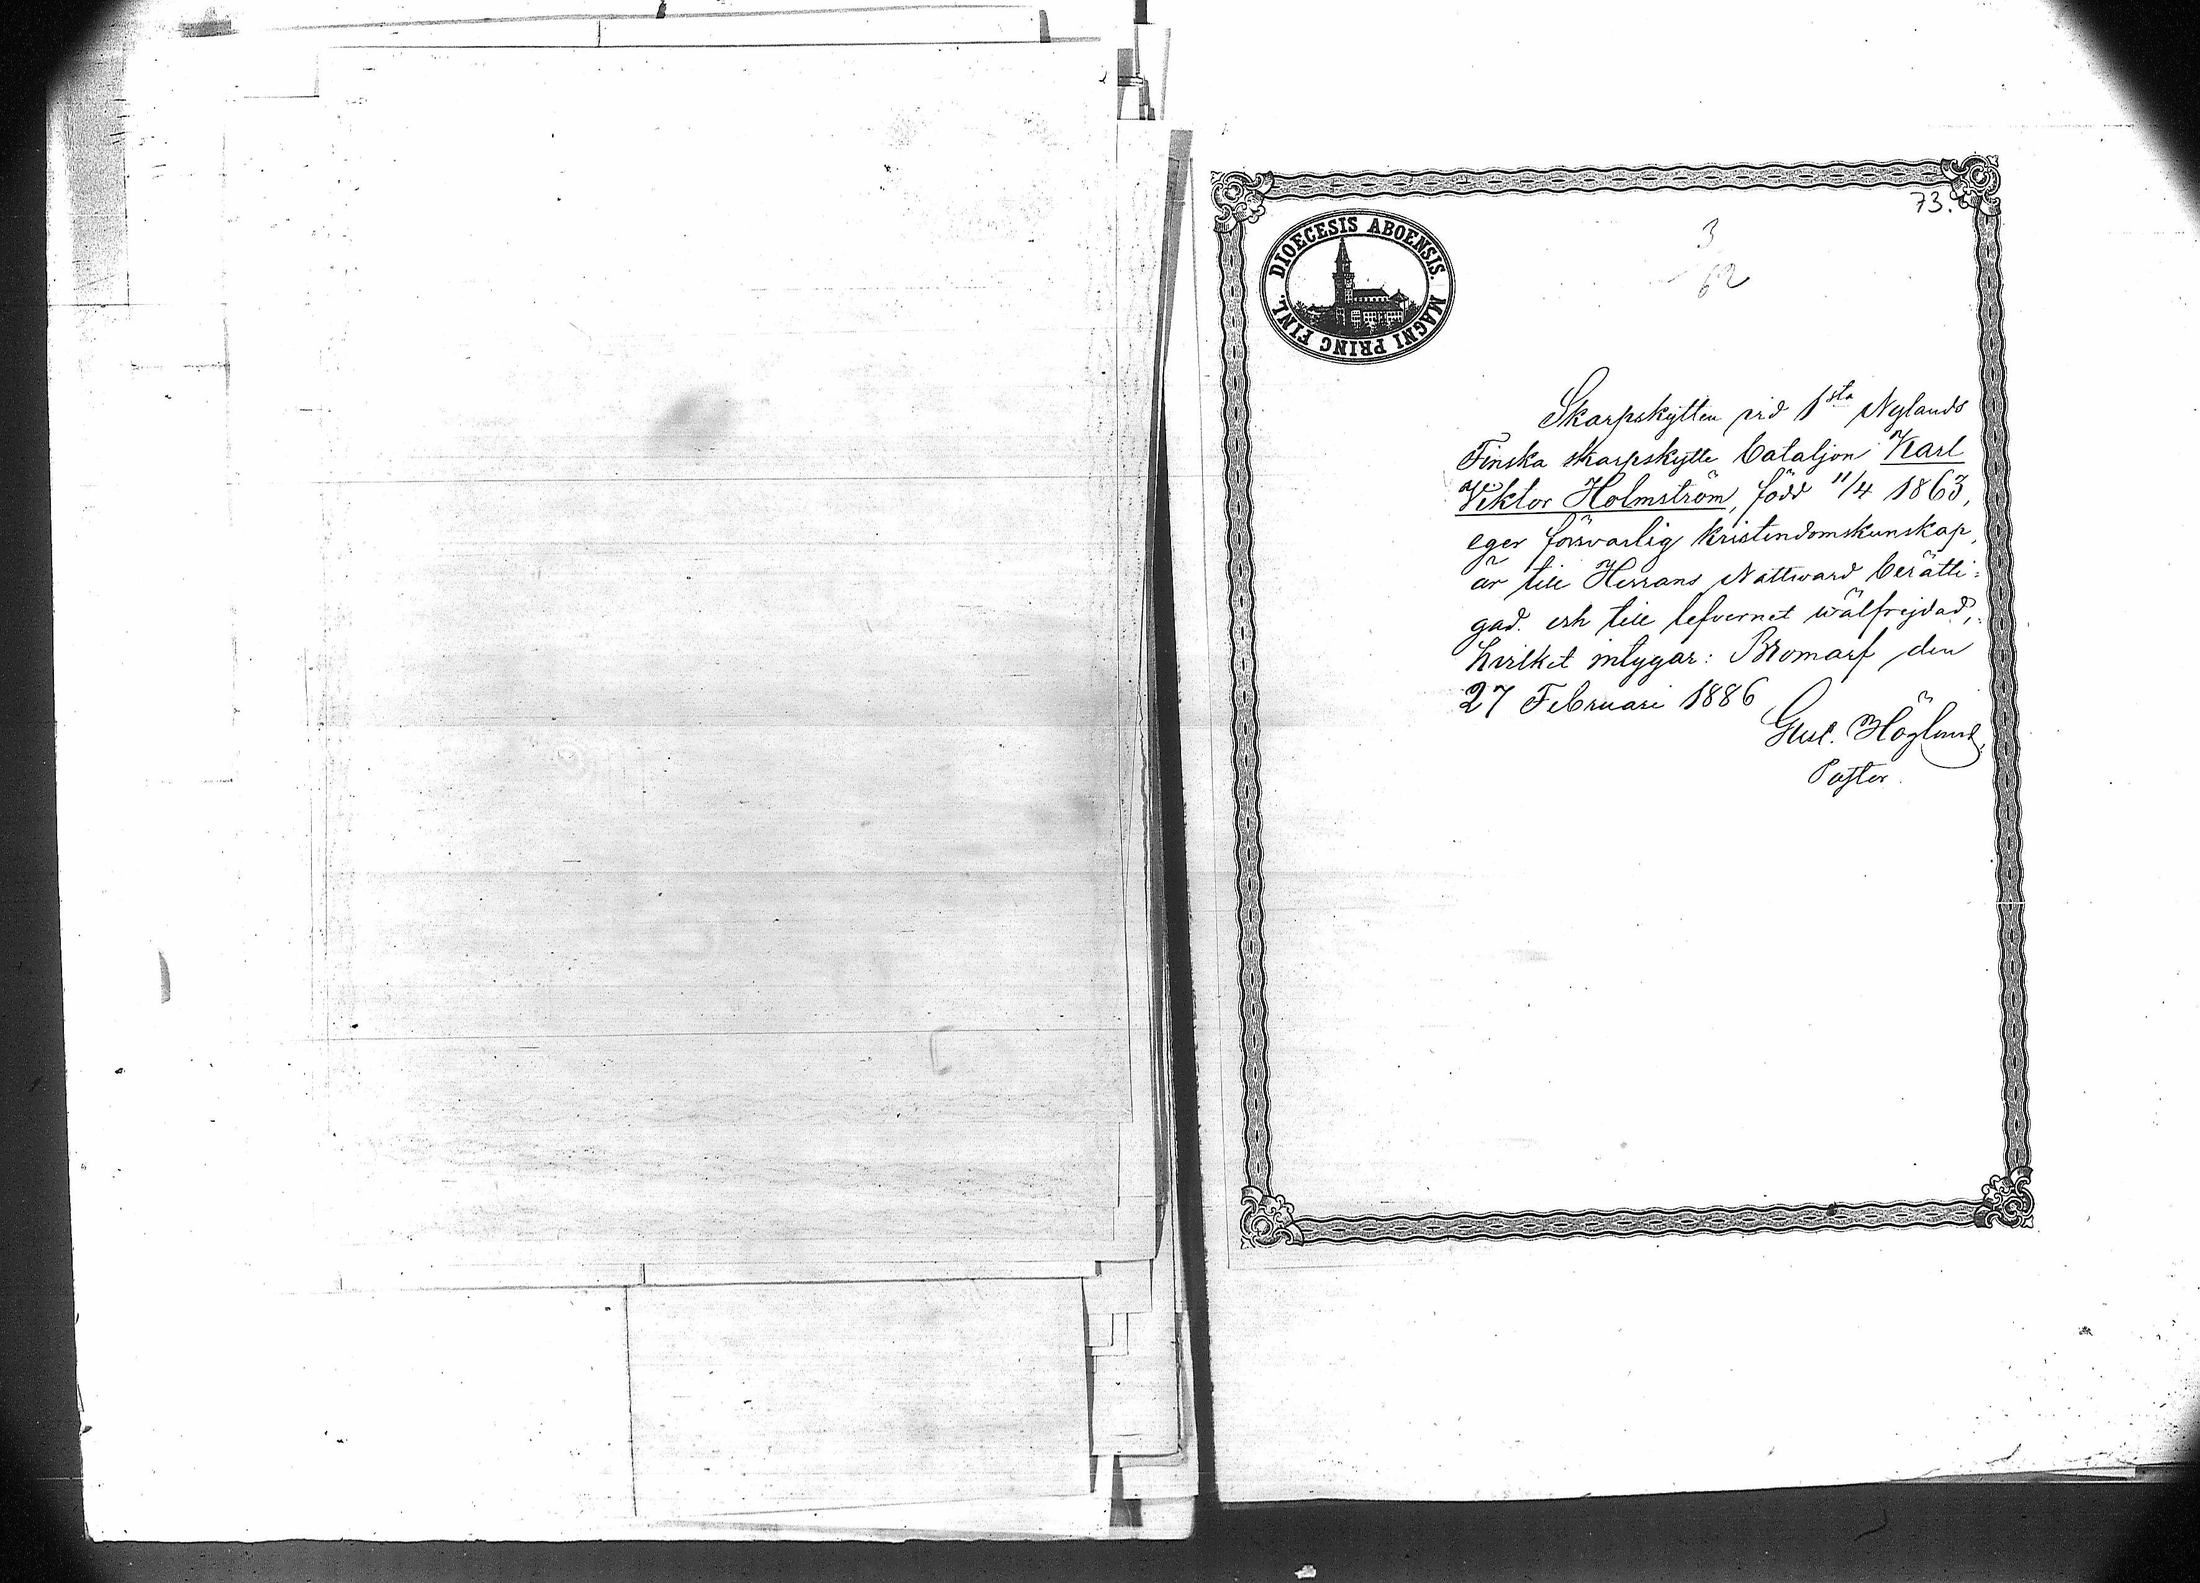 73.
3
62
DIOECESIS ABOENSIS. MAGNI PRINC FINL.
Skarpskytten vid 1sta Nylands
Finska skarpskytte bataljon Karl
Viktor Holmström, född 11/4 1863,
eger försvarlig kristendomskunskap,
är till Herrans Nattward berätti-
gad och till lefvernet wälfrejdad,
hvilket intygar: Bromarf den
27 Februari 1886
Gust. Höglund,
Pastor.